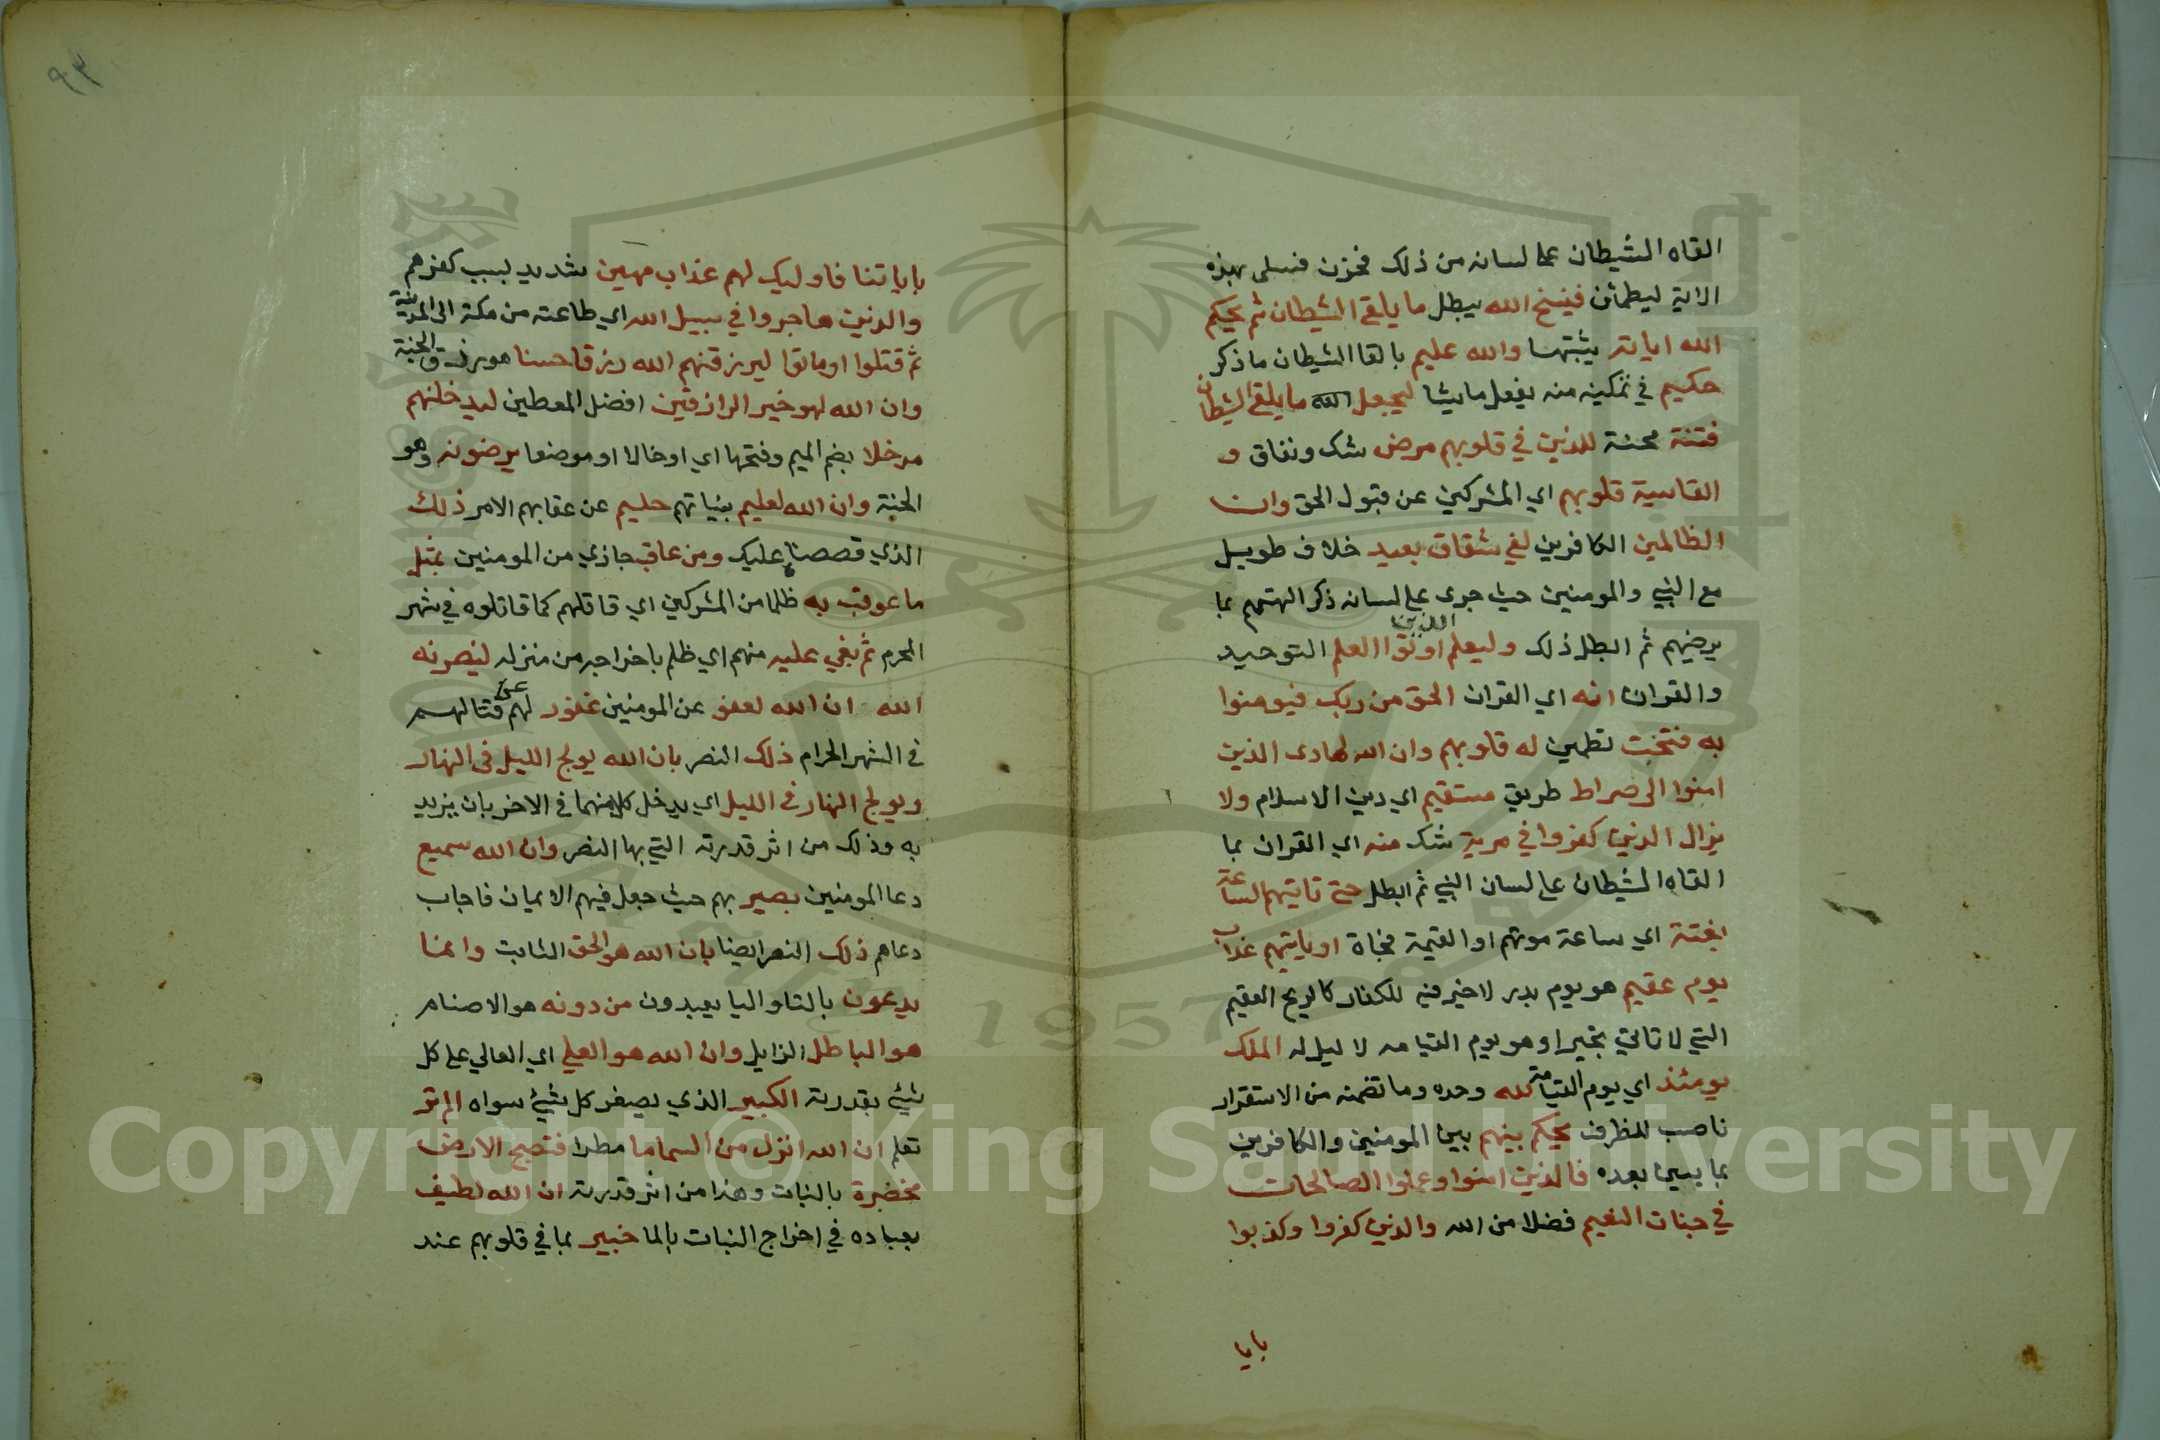 القاه الشيطان على لسانه من ذلك فحزن فسلى بهذه
الاية ليطمئن فينسخ الله يبطل ما يلقى الشيطان ثم يحكم
الله اياته يثبتها والله عليم بالقا الشيطان ما ذكر
حكيم في تمكينه منه يفعل ما يشا ليجعل الله ما يلقى الشيطان
فتنة محنة للذين في قلوبهم مرض شك ونفاق و
القاسية قلوبهم اي المشركين عن قبول الحق وان
الظالمين الكافرين لفي شقاق بعيد خلاف طويل
مع النبي والمومنين حيث جرى على لسانه ذكر الهتهم بما
يرضيهم ثم ابطل ذلك وليعلم الذين اوتوا العلم التوحيد
والقران انه اي القران الحق من ربك فيومنوا
به فتخبت تطمين له قلوبهم وان الله لهادى الذين
امنوا الى صراط طريق مستقيم اي دين الاسلام ولا
يزال الذين كفروا في مرية شك منه اي القران بما
القاه الشيطان على لسان النبي ثم ابطل حتى تاتيهم الساعة
بغتة اي ساعة موتهم او القيمة فجاة او ياتيهم عذاب
يوم عقيم هو يوم بدر لا خير فيه للكفار كالريح العقيم
التي لا تاتي بخير او هو يوم القيامه لا ليل له الملك
يومئذ اي يوم القيامة لله وحده وما تضمنه من الاستقرار
ناصب للظرف يحكم بينهم بين المومنين والكافرين
بما يبين بعده فالذين امنوا وعملوا الصالحات
في جنات النعيم فضلا من الله والذين كفروا وكذبوا
بايا
٩٣
باياتنا فاوليك لهم عذاب مهين شديد بسبب كفرهم
والذين هاجروا في سبيل الله اي طاعته من مكة الى المدينة
ثم قتلوا او ماتوا ليرزقنهم الله رزقا حسنا هو رزق الجنة
وان الله لهو خير الرازقين افضل المعطين ليدخلنهم
مدخلا بضم الميم وفتحها اي ادخالا او موضعا يرضونه وهو
الجنة وان الله لعليم بنياتهم حليم عن عقابهم الامر ذلك
الذي قصصناه عليك ومن عاقب جازي من المومنين بمثل
ما عوقب به ظلما من المشركين اي قاتلهم كما قاتلوه في شهر
المحرم ثم بغي عليه منهم اي ظلم باخراجه من منزله لينصرنه
الله ان الله لعفو عن المومنين غفور لهم عن قتالهم
في الشهر الحرام ذلك النصر بان الله يولج الليل في النهار
ويولج النهار في الليل اي يدخل كلا منهما في الاخر بان يزيد
به وذلك من اثر قدرته التي بها النصر وان الله سميع
دعا المومنين بصير بهم حيث جعل فيهم الايمان فاجاب
دعاهم ذلك النصر ايضا بان الله هو الحق الثابت وانما
يدعون بالتاو اليا يعبدون من دونه هو الاصنام
هو الباطل الزايل وان الله هو العلي اي العالي على كل
شيئ بقدرته الكبير الذي يصغر كل شيئ سواه الم تر
تعلم ان الله انزل من السما ما مطرا فتصبح الارض
مخضرة بالنبات وهذا من اثر قدرته ان الله لطيف
بعباده في اخراج النبات بالما خبير بما في قلوبهم عند
1957
Copyright © King Saud University